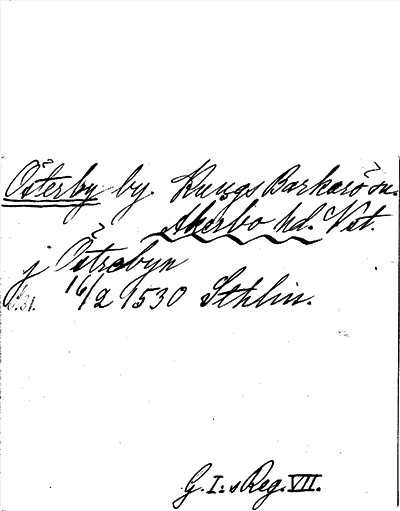 Österby by. KungsBarkarö sn.
Åkerbo hd. Vst.
j Östrebyn
16/2 1530 Sthlm.
s. 31.
G. I:s Reg. VII.